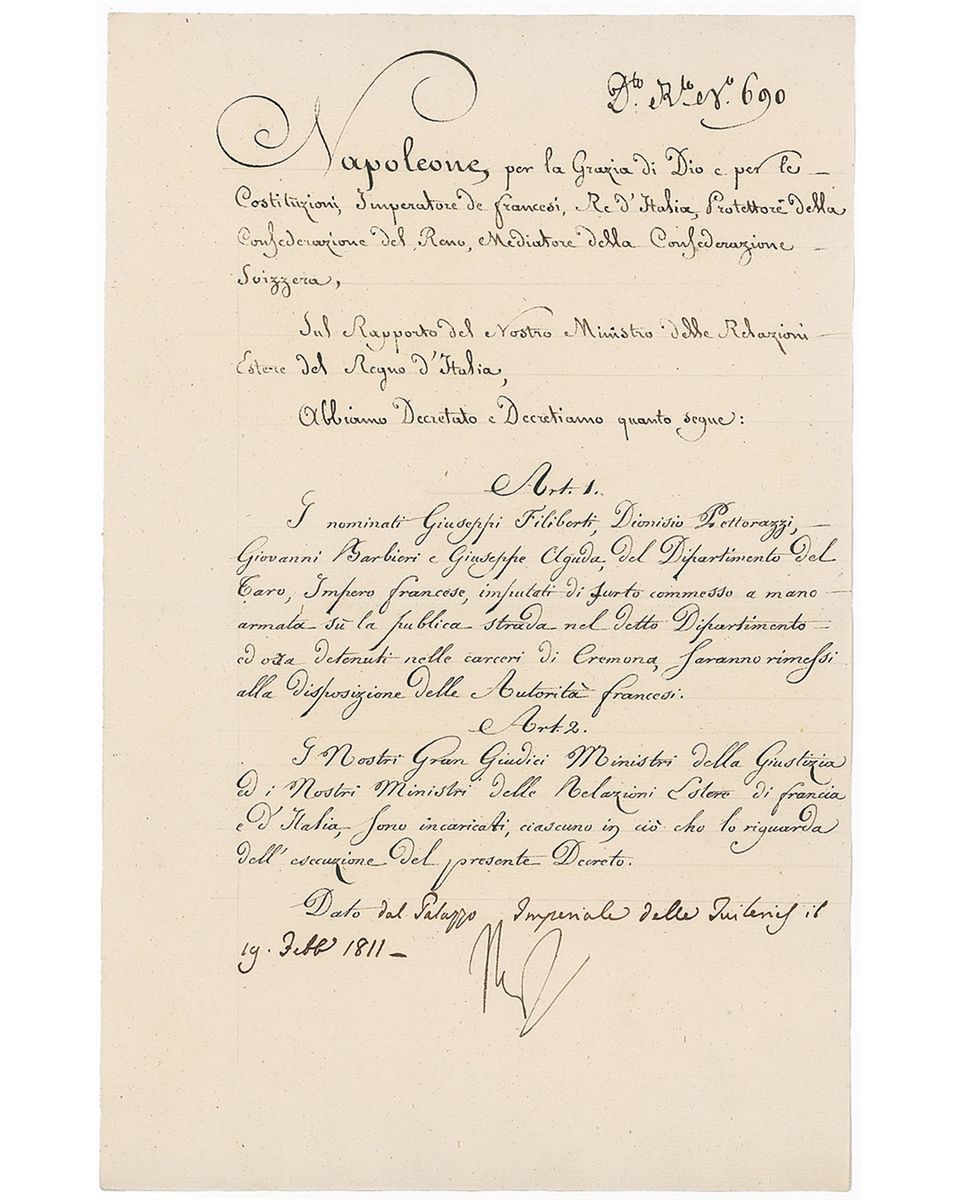 D.to R.le N.o 690
Napoleone, per la Grazia di Dio e per le
Costituzioni, Imperatore de francesi, Re d'Italia, Protettore della
Confederazione del Reno, Mediatore della Confederazione
Svizzera,
Sul Rapporto del Nostro Ministro delle Relazioni
Estere del Regno d'Italia,
Abbiamo Decretato e Decretiamo quanto segue:
Art. 1.
I nominati Giuseppi Filiberti, Dionisio Pettorazzi,
Giovanni Barbieri e Giuseppe Aguda, del Dipartimento del
Taro, Impero francese, imputati di furto commesso a mano
armata sù la publica strada nel detto Dipartimento
ed ora detenuti nelle carceri di Cremona, saranno rimessi
alla disposizione delle Autorità francesi.
Art. 2.
I Nostri Gran Giudici Ministri della Giustizia
ed i Nostri Ministri delle Relazioni Estere di francia
e d'Italia, sono incaricati, ciascuno in ciò che lo riguarda
dell'esecuzione del presente Decreto.
Dato dal Palazzo Imperiale delle Tuileries il
19. Febb 1811 -